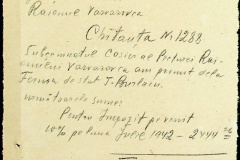 Raionul Varvarovca
Chitanța Nr. 1288
Subsemnatul Casier al Preturei Rai-
onului Varvarovca am primit dela
Ferma de stat T.
următoarele sume:
Pentru Impozit percent
10% pe luna Iulie 1942 - 2444